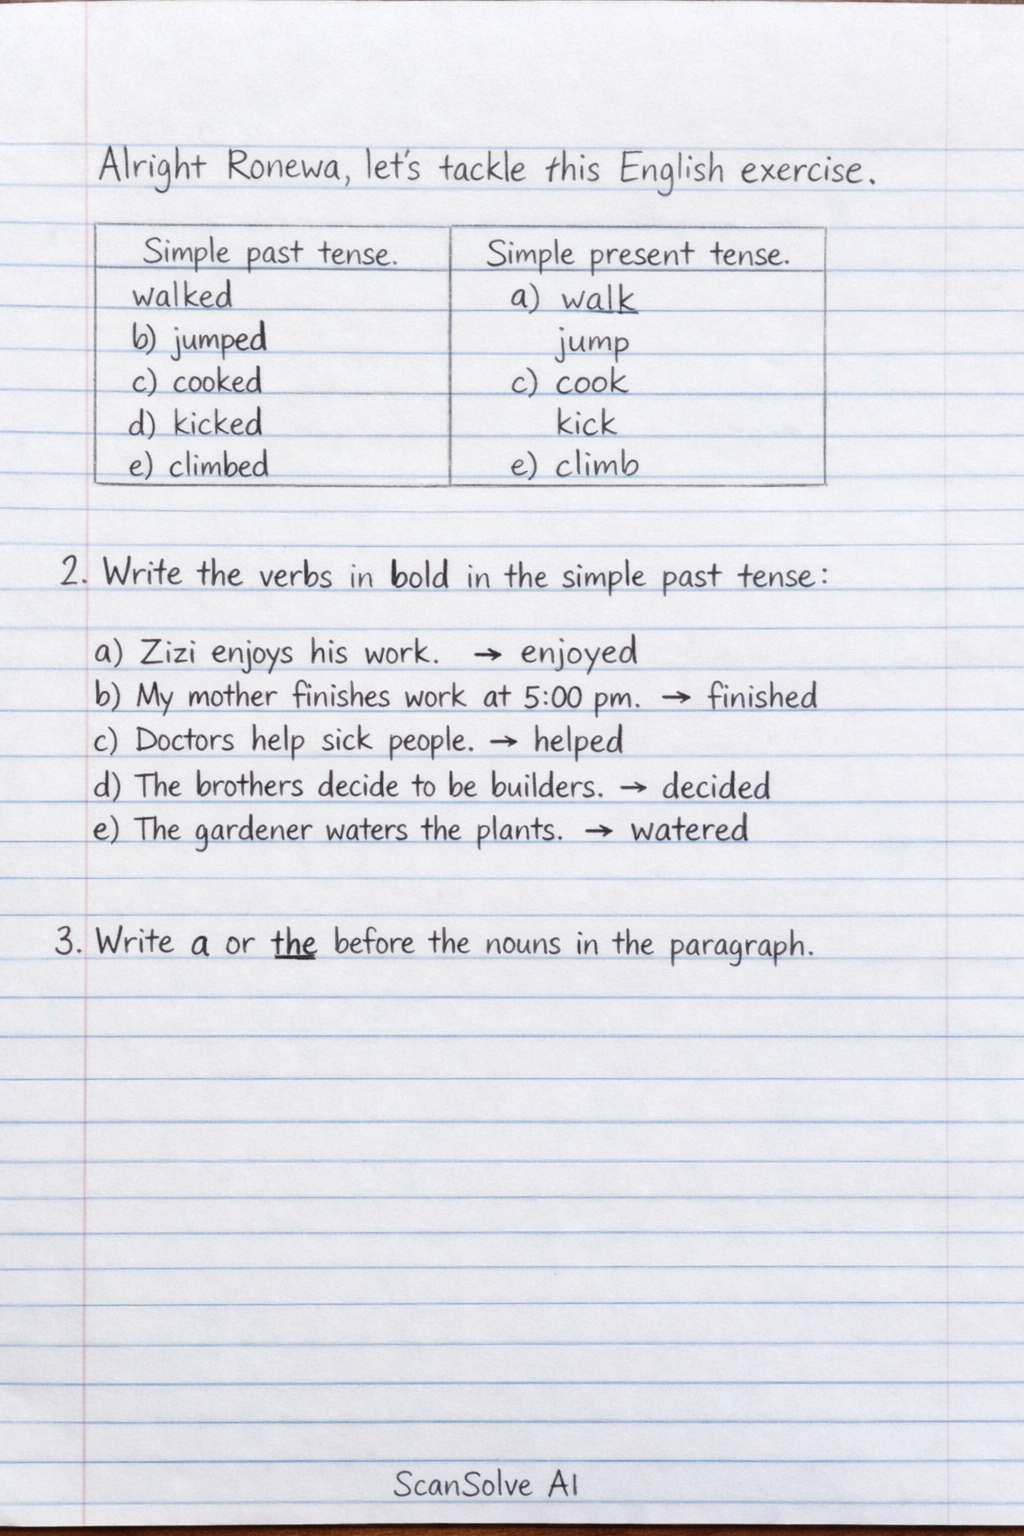 Alright Ronewa, let's tackle this English exercise.
Simple past tense. Simple present tense.
walked a) walk
b) jumped jump
c) cooked c) cook
d) kicked kick
e) climbed e) climb
2. Write the verbs in bold in the simple past tense:
a) Zizi enjoys his work. → enjoyed
b) My mother finishes work at 5:00 pm. → finished
c) Doctors help sick people. → helped
d) The brothers decide to be builders. → decided
e) The gardener waters the plants. → watered
3. Write a or the before the nouns in the paragraph.
ScanSolve AI